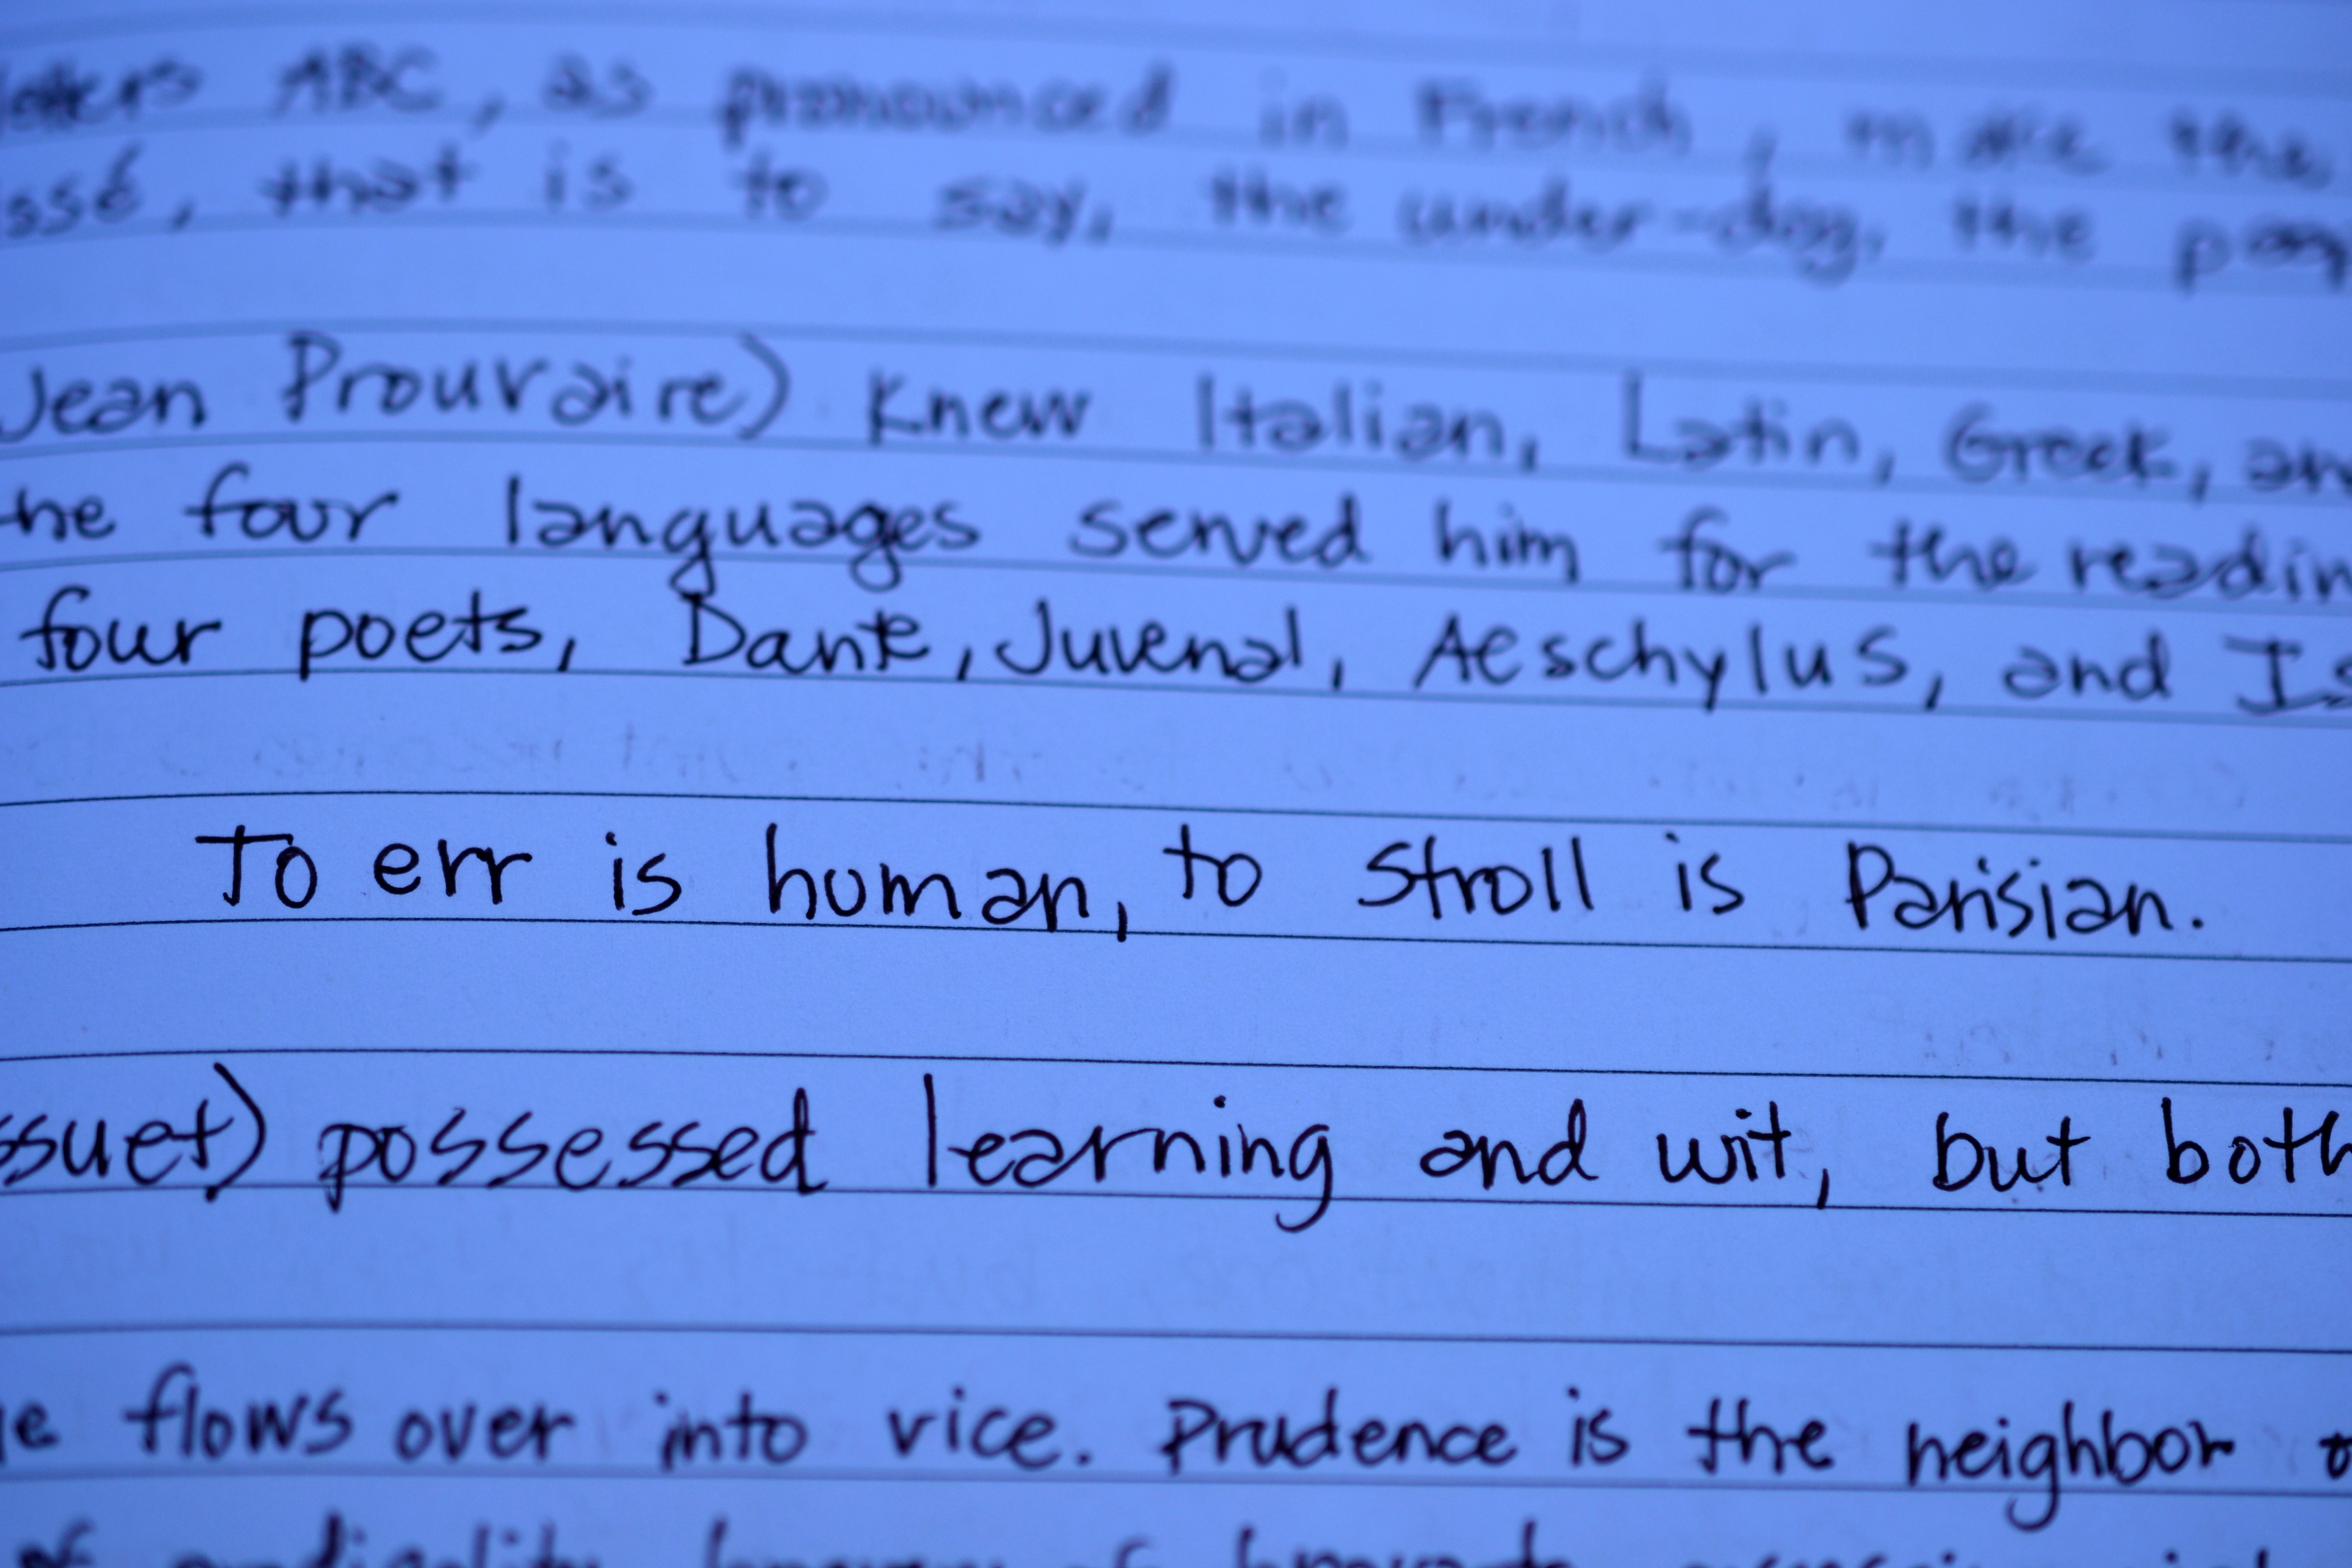 letters ABC, as pronounced in French, make the
ssé, that is to say, the under-dog, the
Jean Prouvaire) knew Italian, Latin, Greek, an
he four languages served him for the readin
four poets, Dante, Juvenal, Aeschylus, and Is
To err is human, to stroll is Parisian.
ssuet) possessed learning and wit, but both
e flows over into vice. Prudence is the neighbor o
of